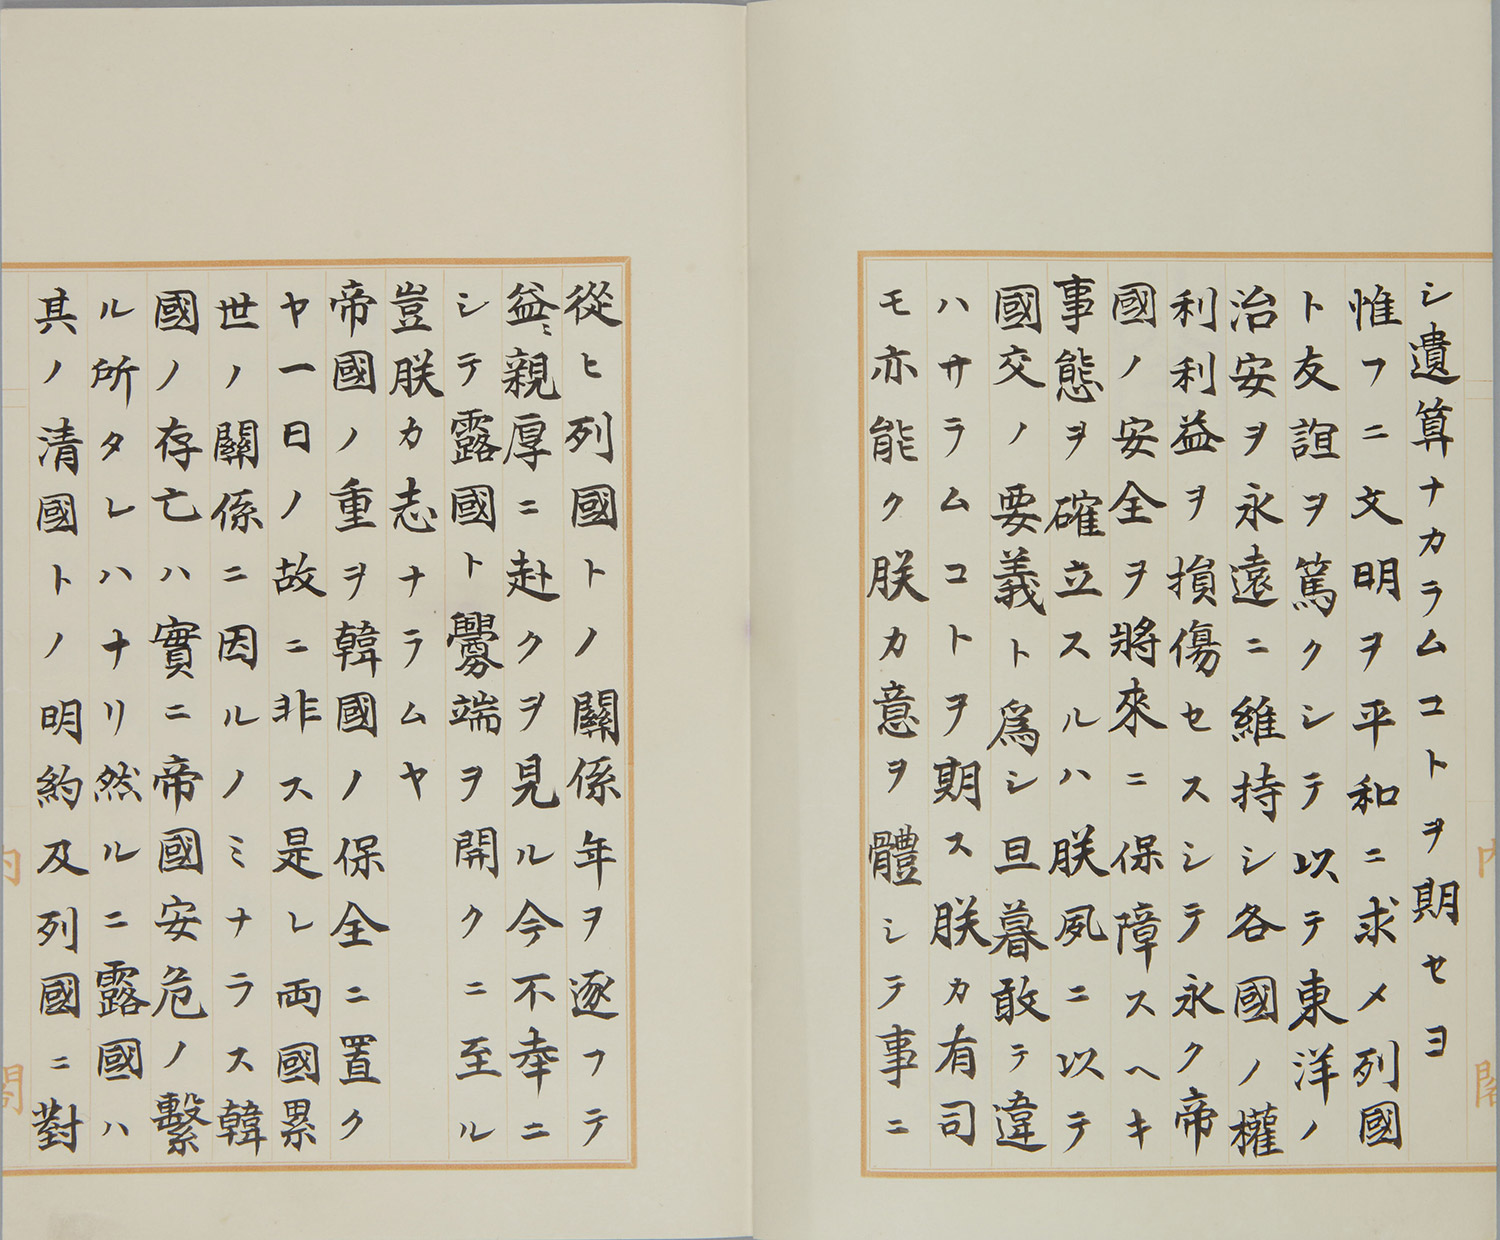 シ遺算ナカラムコトヲ期セヨ
惟フニ文明ヲ平和ニ求メ列國
ト友誼ヲ篤クシテ以テ東洋ノ
治安ヲ永遠ニ維持シ各國ノ權
利利益ヲ損傷セスシテ永ク帝
國ノ安全ヲ將來ニ保障スヘキ
事態ヲ確立スルハ朕夙ニ以テ
國交ノ要義ト爲シ旦暮敢テ違
ハサラムコトヲ期ス朕カ有司
モ亦能ク朕カ意ヲ體シテ事ニ
從ヒ列國トノ關係年ヲ逐フテ
益〻親厚ニ赴クヲ見ル今不幸ニ
シテ露國ト釁端ヲ開クニ至ル
豈朕カ志ナラムヤ
帝國ノ重ヲ韓國ノ保全ニ置ク
ヤ一日ノ故ニ非ス是レ両國累
世ノ關係ニ因ルノミナラス韓
國ノ存亡ハ實ニ帝國安危ノ繫
ル所タレハナリ然ルニ露國ハ
其ノ清國トノ明約及列國ニ對
内閣